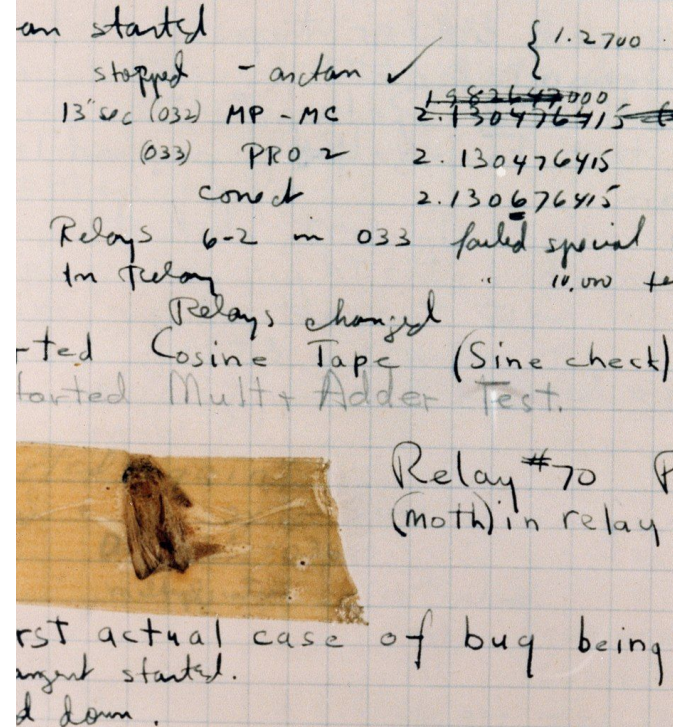 an started
{ 1.2700
stopped - arctan ✓
13" sec (032) MP - MC 1.982647000
2.130476415
(033) PRO 2 2.130476415
correct 2.130676415
Relays 6-2 in 033 failed special
In Relay " 10,000 te
Relays changed
rted Cosine Tape (Sine check)
tarted Mult + Adder Test.
Relay #70 P
(moth) in relay
rst actual case of bug being
angent started.
d down.